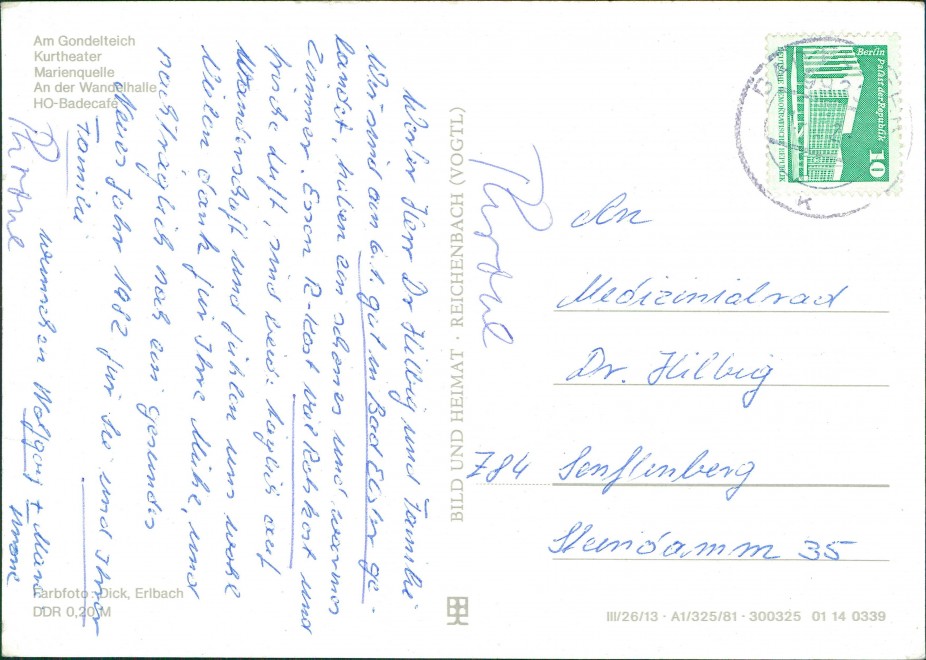 Am Gondelteich
Kurtheater
Marienquelle
An der Wandelhalle
HO-Badecafé
Werter Herr Dr Hilbig und Familie
Wir sind am 6.1. gut in Bad Elster ge-
landet, haben ein schönes und warmes
Zimmer. Essen R-kost wie Rohkost und
frische Luft, sind wir täglich auf
Wanderschaft und fühlen uns wohl
Vielen Dank für Ihre Mühe, und
nachträglich noch ein gesundes
Neues Jahr 1982 für Sie und Ihrer
Familie
wünschen Wolfgang + Mari
anne
Farbfoto: Dick, Erlbach
DDR 0,20 M
BILD UND HEIMAT · REICHENBACH (VOGTL)
An
Medizinialrad
Dr. Hilbig
784 Senftenberg
Steindamm 35
Berlin
Palast der Republik
10
DEUTSCHE DEMOKRATISCHE REPUBLIK
III/26/13 · A1/325/81 · 300325 01 14 0339